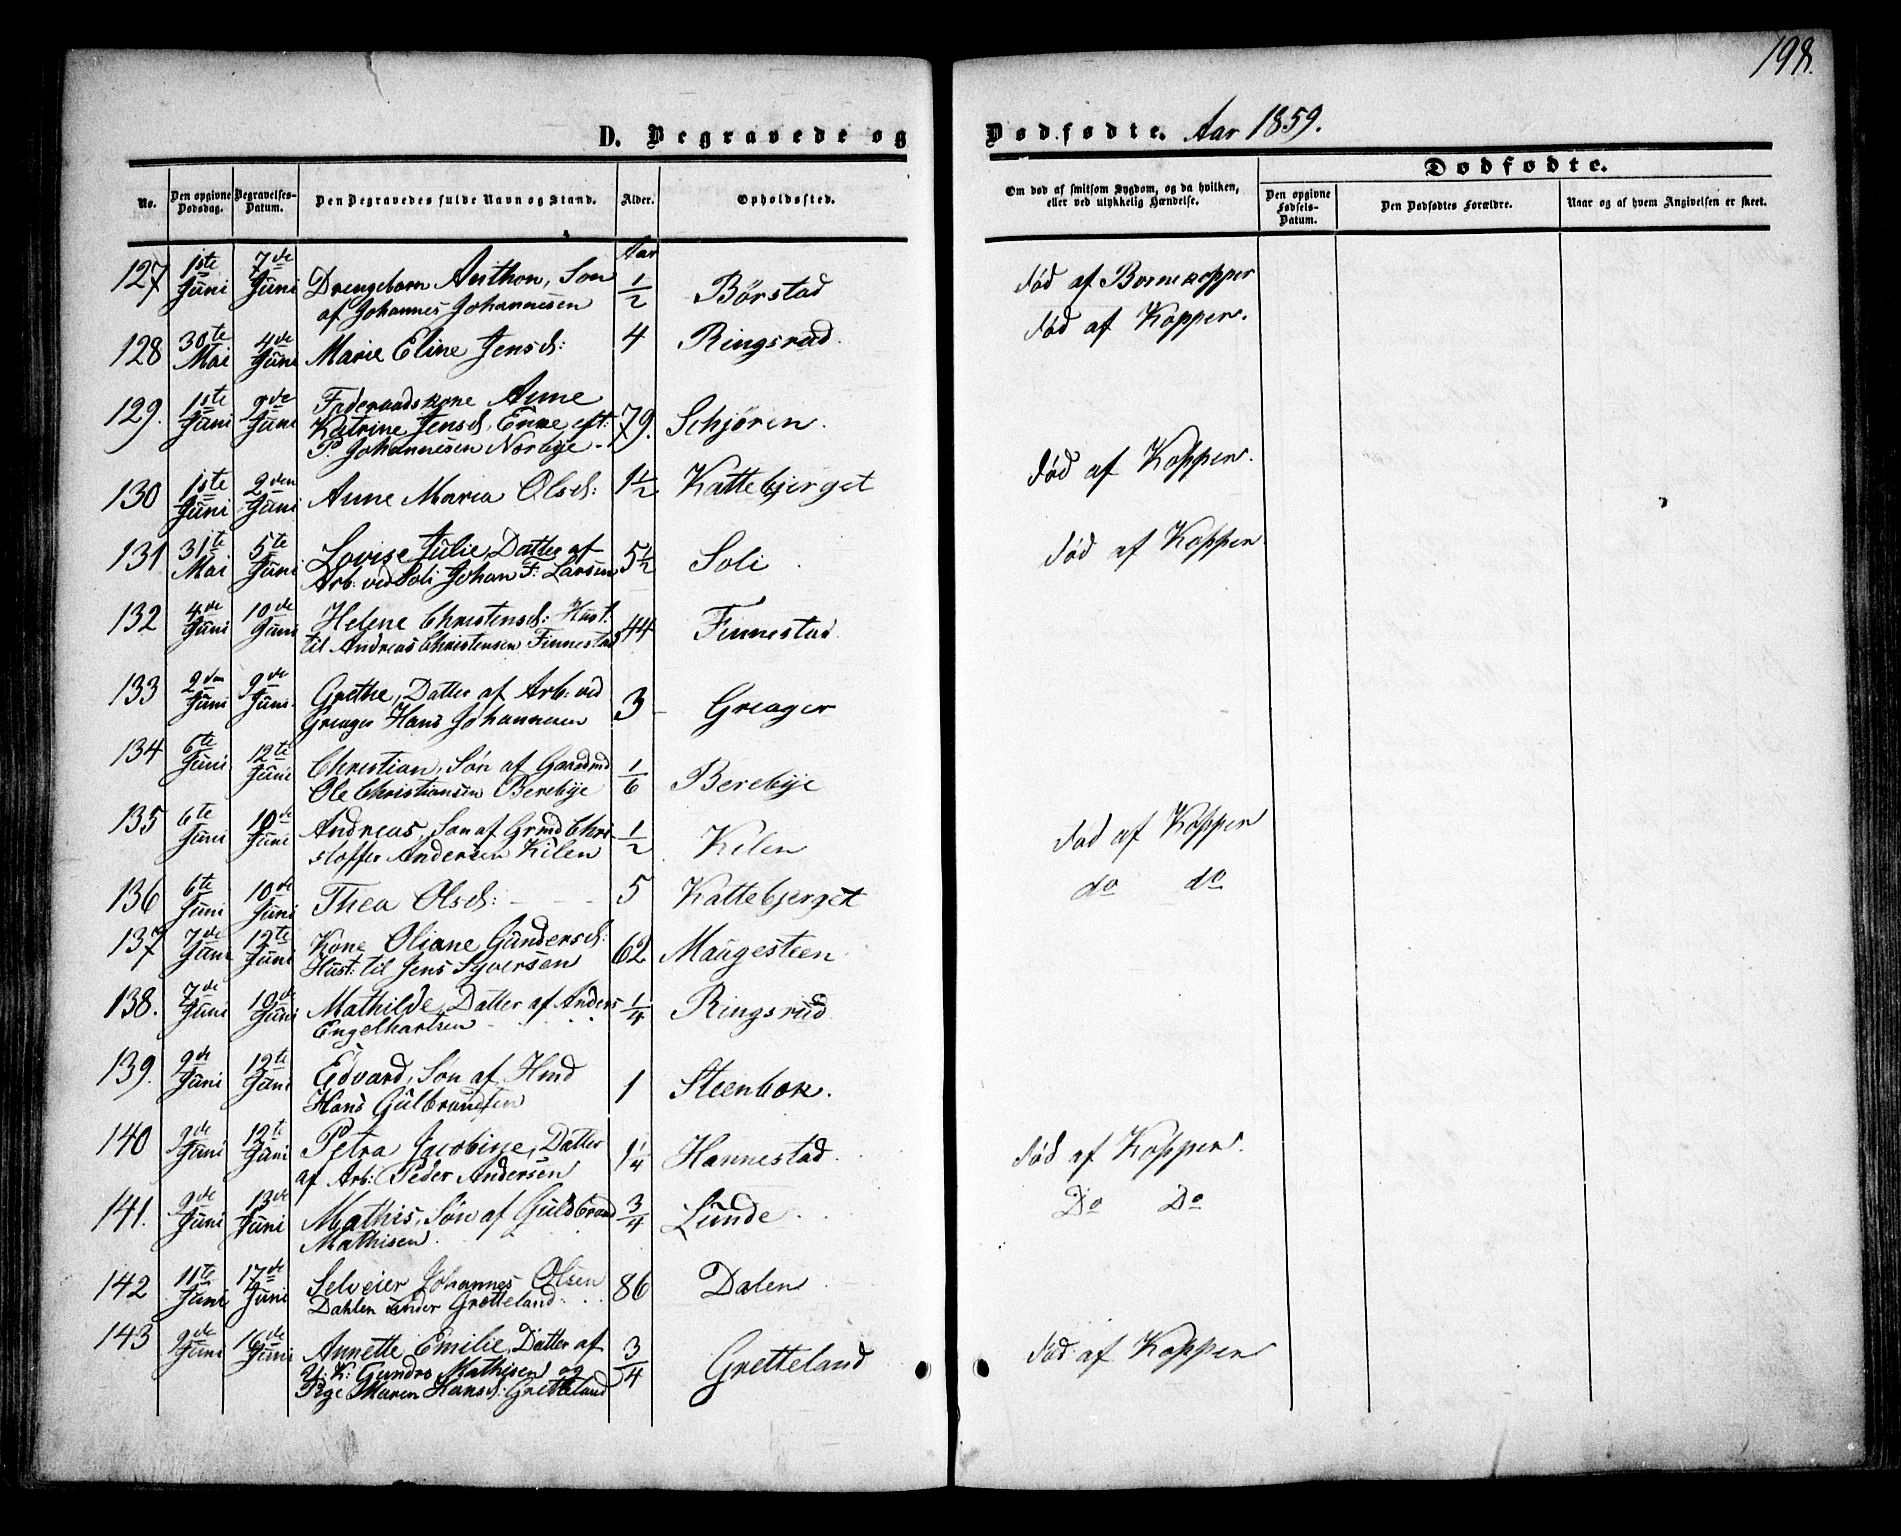 198.
D. Begravede og Dødfødte. Aar 1859.
No. Den opgivne Dødsdag. Begravelses-Datum. Den Begravedes fulde Navn og Stand. Alder. Opholdssted. Om død af smitsom Sygdom, og da hvilken, eller ved ulykkelig Hændelse. Dødfødte. Den opgivne Fødsels-Datum. Den Dødfødtes Forældre. Naar og af hvem Angivelsen er skeet.
Aar
127 1ste Juni 7de Juni Drengebarn Anthon, Søn af Johannes Johannesen 1/2 Børstad død af Børnekopper
128 30te Mai 4de Juni Marie Eline Jensd: 4 Ringsrud død af Kopper.
129. 1ste Juni 9de Juni Føderaadskone Anne
Katrine Jensd. Enke eft: 79. Schjøren.
P. Johannesen Norbye
130 1ste Juni 2den Juni Anne Maria Olsd: 1 1/2 Kattebjerget død af Kopper.
131 31te Mai 5te Juni Lovise Julie, Datter af
Arb: ved Soli Johan F: Larsen 5 1/2 Soli død af Kopper
132 4de Juni 10de Juni Helene Christensd: Hust.
til Andreas Christensen Finnestad 44 Finnestad
133 2den Juni 9de Juni. Grethe, Datter af Arb: ved
Greager Hans Johannesen 3 Greager
134 6te Juni 12te Juni Christian, Søn af Gaardmd
Ole Christiansen Berebye 1/6 Berebye
135 6te Juni 10de Juni Andreas, Søn af Grmd Chri-
stoffer Andersen Kilen 1/2 Kilen død af Kopper
136 6te Juni 10de Juni Thea Olsd: 5 Kattebjerget do do
137 7de Juni 12te Juni Kone Oliane Gundersd:
Hust: til Jens Syversen 62 Maugesteen
138. 7de Juni 10de Juni Mathilde, Datter af Anders
Engelhartsen 1/4 Ringsrud
139. 9de Juni 12te Juni Edvard, Søn af Hmd
Hans Gulbrandsen 1 Steenbok.
140 9de Juni 12te Juni Petra Jacobine, Datter
af Arb: Peder Andersen 1 1/4 Hannestad død af Kopper.
141. 9de Juni 13de Juni Mathis, Søn af Guldbrand
Mathisen 3/4 Lunde Do Do
142 11te Juni 17de Juni Selveier Johannes Olsen
Dahlen under Grøtteland 86 Dalen
143 9de Juni 16de Juni Annette Emilie, Datter af
U: K: Gundro Mathisen og
Pige Maren Hansd: Gretteland 3/4 Gretteland død af Kopper